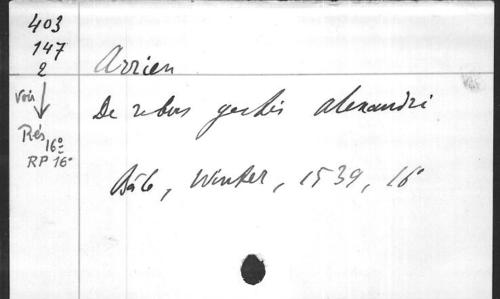 403
147
2
Voir
Rés
16°
RP 16°
Arrien
De rebus gestis alexandri
Bâle, Winter, 1539, 16°